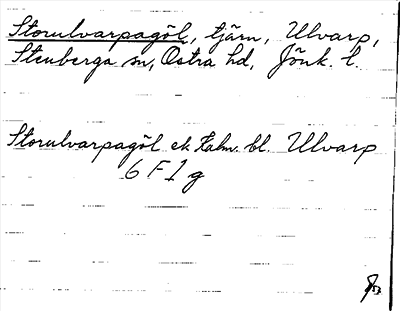 Storulvarpagöl, tjärn, Ulvarp,
Stenberga sn, Östra hd, Jönk. l.
Storulvarpagöl ek. Kalm. bl. Ulvarp
6 F 1 g